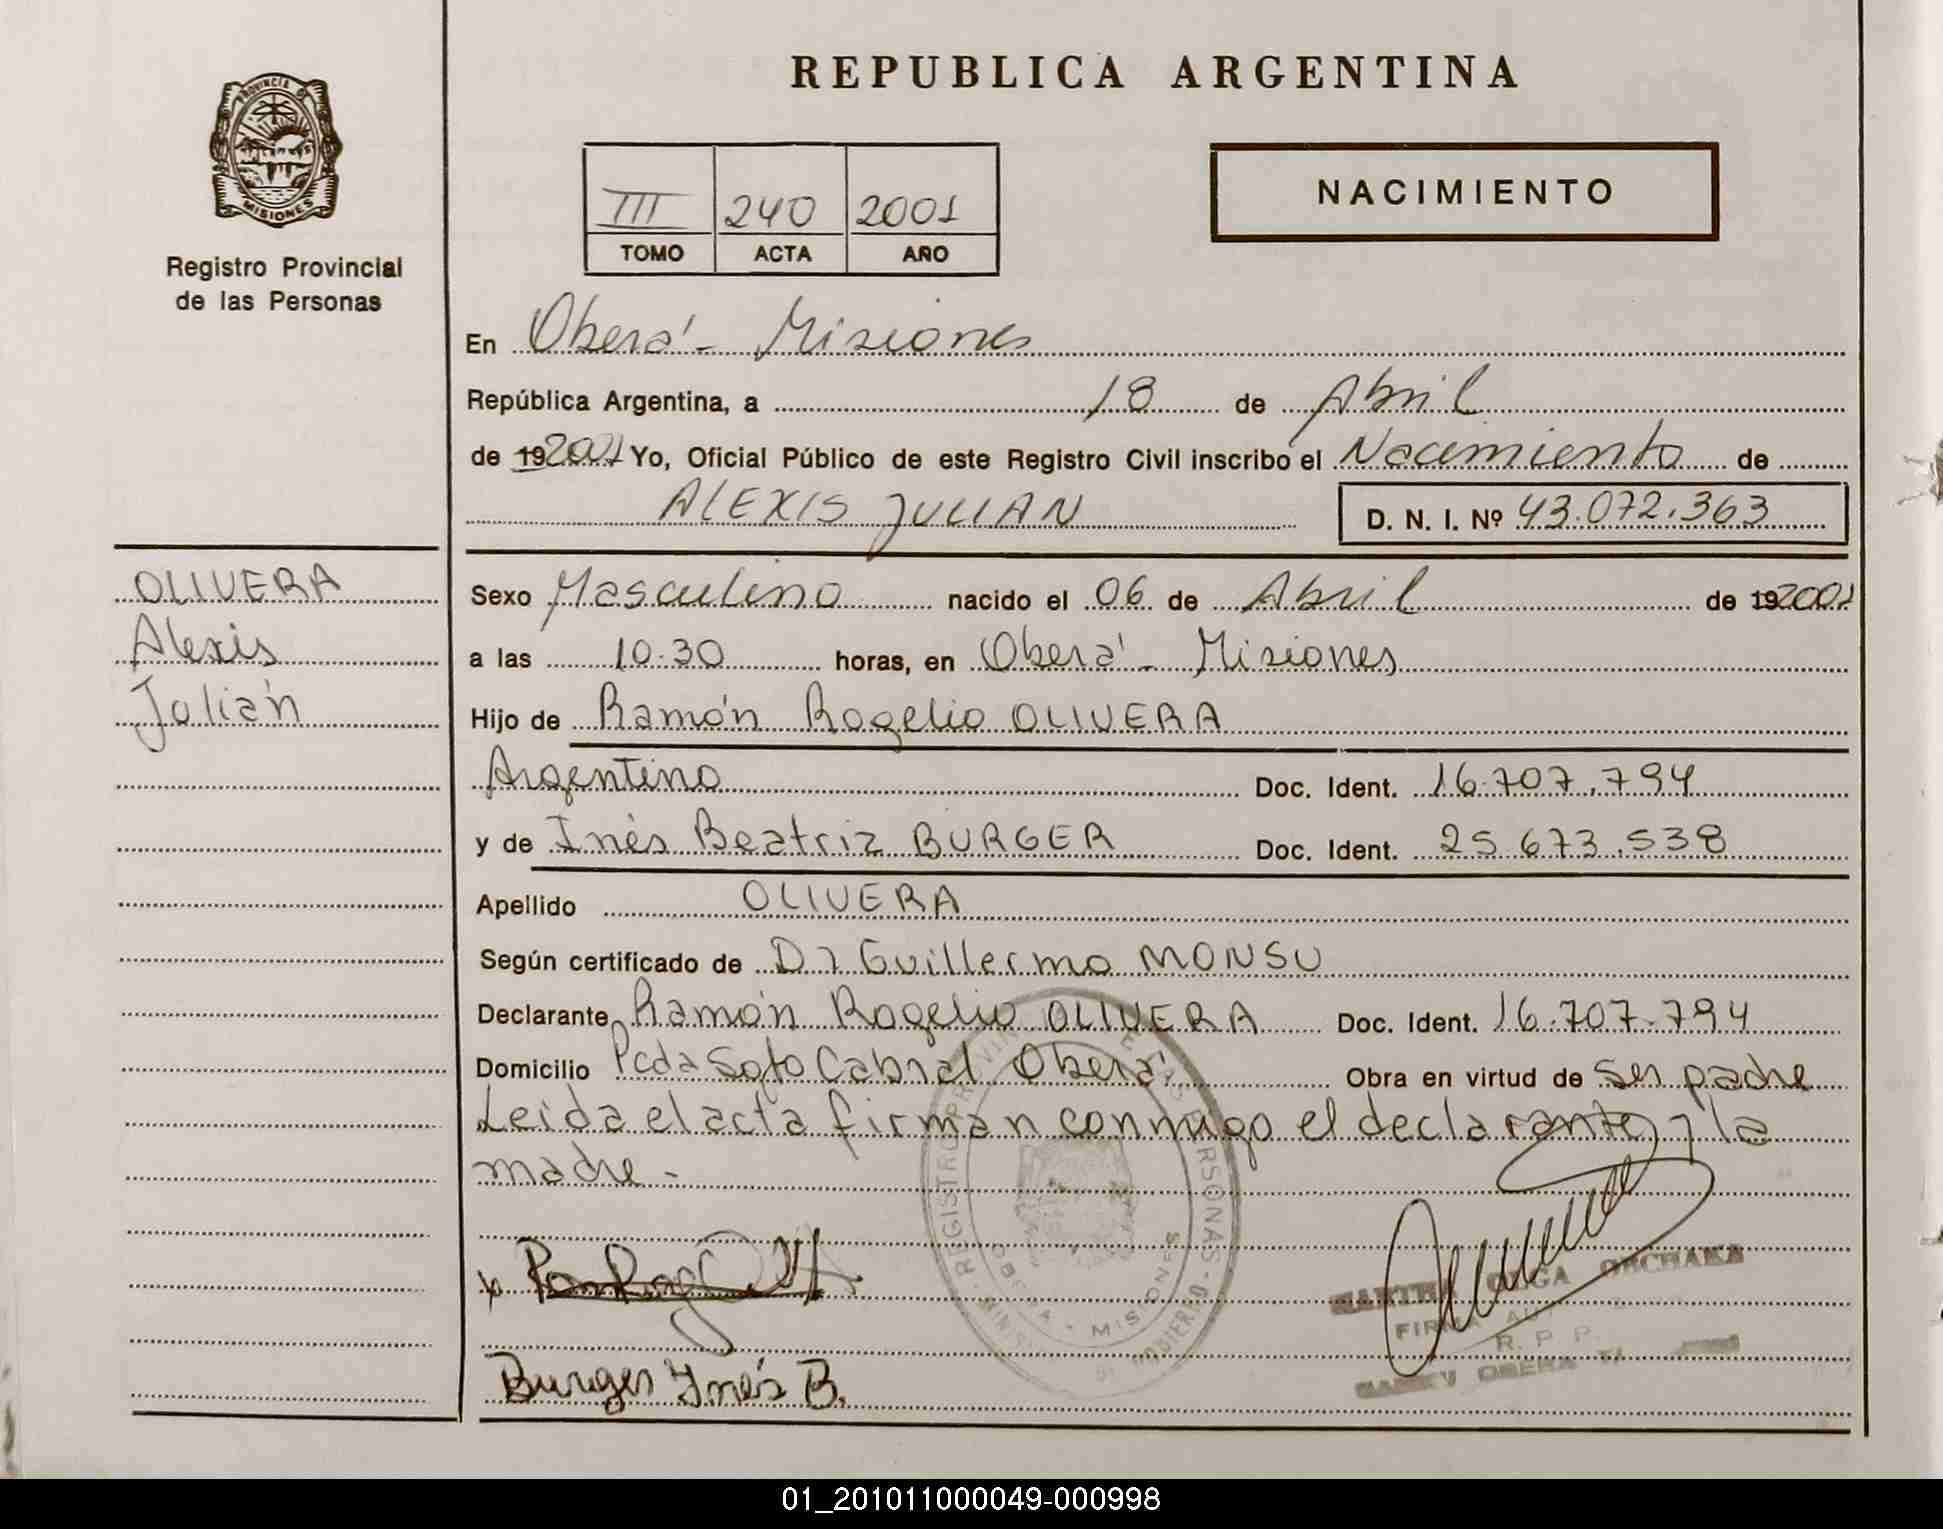 REPUBLICA ARGENTINA
PROVINCIA DE
MISIONES
Registro Provincial
de las Personas
III 240 2001
TOMO ACTA AÑO
NACIMIENTO
En Oberá - Misiones
República Argentina, a 18 de Abril
de 19 2001 Yo, Oficial Público de este Registro Civil inscribo el Nacimiento de
ALEXIS JULIAN D. N. I. Nº 43.072.363
OLIVERA
Alexis
Julián
Sexo Masculino nacido el 06 de Abril de 19 2001
a las 10.30 horas, en Oberá - Misiones
Hijo de Ramón Rogelio OLIVERA
Argentino Doc. Ident. 16.707.794
y de Inés Beatriz BURGER Doc. Ident. 25.673.538
Apellido OLIVERA
Según certificado de Dr Guillermo MONSU
Declarante Ramón Rogelio OLIVERA Doc. Ident. 16.707.794
Domicilio Pcda Soto Cabral Oberá Obra en virtud de ser padre
Leida el acta firman conmigo el declarante y la
madre -
REGISTRO PROVIN PERSONAS
OBERA - MISIONES
MARTHA OLGA
FIRMA AU
R. P. P.
OBERA
Burger Inés B.
01_201011000049-000998